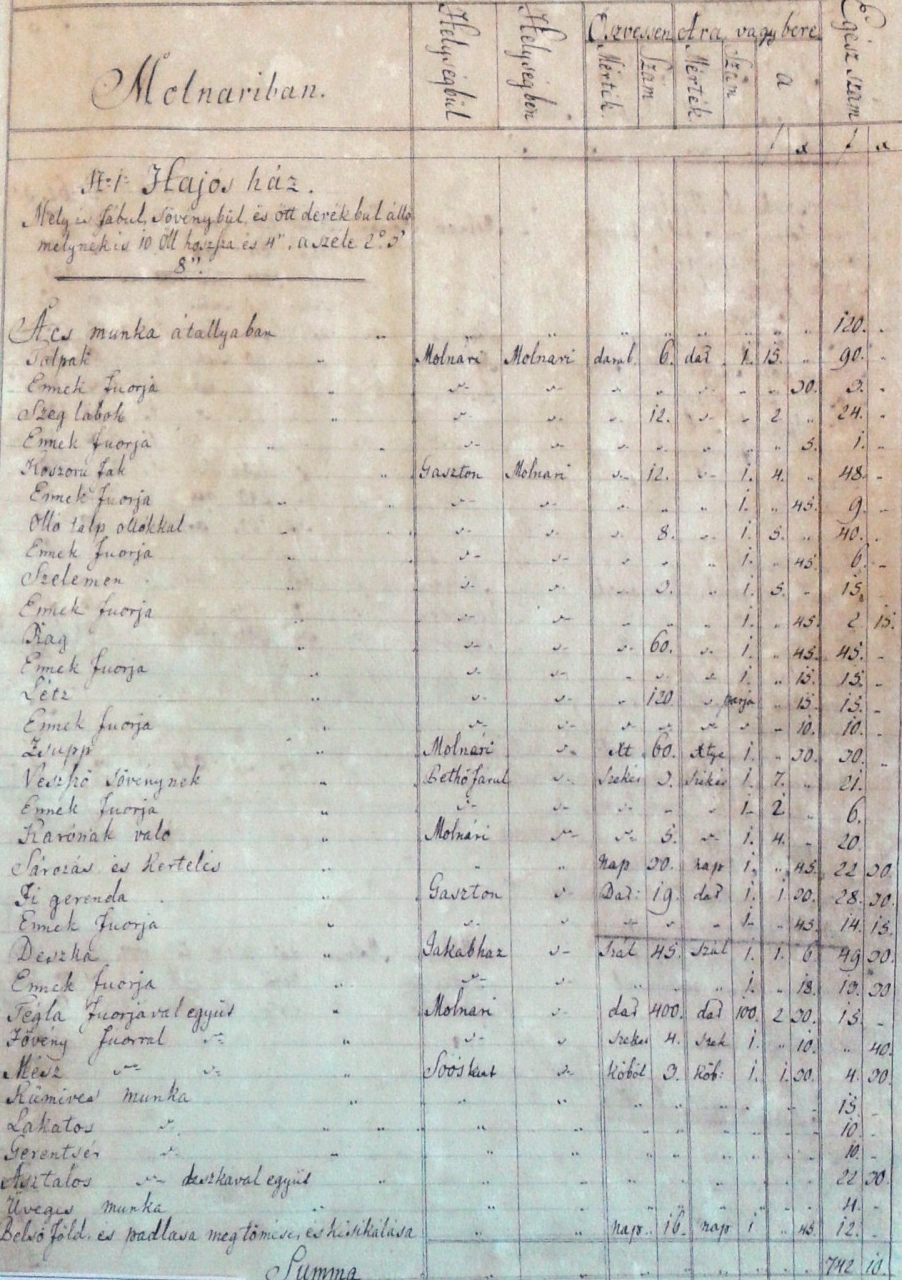 Molnariban.
Helységbül
Helységben
Eszvessen Ara, vagy bere
Egész szám
Mérték. Szám Mérték. Szám a
f x f x
Nr 1 Hajos ház.
Mely is fábul, Sövénybül, és ött derékbul álló
melynek is 10 Öll hoszsza és 4". a széle 2° 3'
8".
Ács munka átallyaban „ „ „ „ „ „ „ „ „ 120. „
Talpak „ Molnári Molnári darab 6. dar 1. 15. „ 90. „
Ennek fuorja „ „ „ „ „ „ „ „ 30. 3. „
Szeg lábok „ „ „ „ 12. „ „ 2 „ 24. „
Ennek fuorja „ „ „ „ „ „ „ „ 5. 1. „
Koszorú fák „ Gaszton Molnári „ 12. „ 1. 4. „ 48. „
Ennek fuorja „ „ „ „ „ „ 1. „ 45. 9. „
Olló talp ollókkal „ „ „ „ 8. „ 1. 5. „ 40. „
Ennek fuorja „ „ „ „ „ „ 1. „ 45. 6. „
Szelemen „ „ „ „ 3. „ 1. 5. „ 15. „
Ennek fuorja „ „ „ „ „ „ 1. „ 45. 2. 15.
Rag „ „ „ „ 60. „ 1. „ 45. 45. „
Ennek fuorja „ „ „ „ „ „ 1. „ 15. 15. „
Létz „ „ „ „ 120. „ parja „ 15. 15. „
Ennek fuorja „ „ „ „ „ „ „ „ 10. 10. „
Zsupp „ Molnári „ 60. 1. „ 30. 30. „
Veszszö Sövénynek „ „ Szekér 3. Szekér 1. 7. „ 21. „
Ennek fuorja „ „ „ „ „ „ 1. 2. „ 6. „
Karónak való „ Molnári „ „ 5. „ 1. 4. „ 20. „
Sározás és Kertelés „ „ „ nap 30. nap 1. „ 45. 22 30.
Fi gerenda „ Gaszton „ Dar: 19. dar 1. 1 30. 28. 30.
Ennek fuorja „ „ „ „ „ „ 1. „ 45. 14. 15.
Deszka „ Jakabhaz „ Szál 45. Szál 1. 1. 6. 49 30.
Ennek fuorja „ „ „ „ „ „ 1. „ 18. 13. 30
Tégla fuorjával együt „ Molnári „ dar 400. dar 100. 2 30. 15. „
Fövény fuorral „ „ „ „ Szeker 4. Szek 1. „ 10. „ 40.
Mész „ „ „ „ „ Köböl 3. Köb: 1. 1. 30. 4. 30.
Kümives munka „ „ „ „ „ „ „ „ „ 15. „
Lakatos „ „ „ „ „ „ „ „ „ „ 10. „
Gerentsér „ „ „ „ „ „ „ „ „ 10. „
Asztalos „ deszkaval együt „ „ „ „ „ „ „ „ 22 30
Üveges munka „ „ „ „ „ „ „ „ „ 4. „
Belső föld. és padlasa megtömése, és kisikálása „ „ nap. 16. nap 1 „ 45 12. „
Summa 742 10.